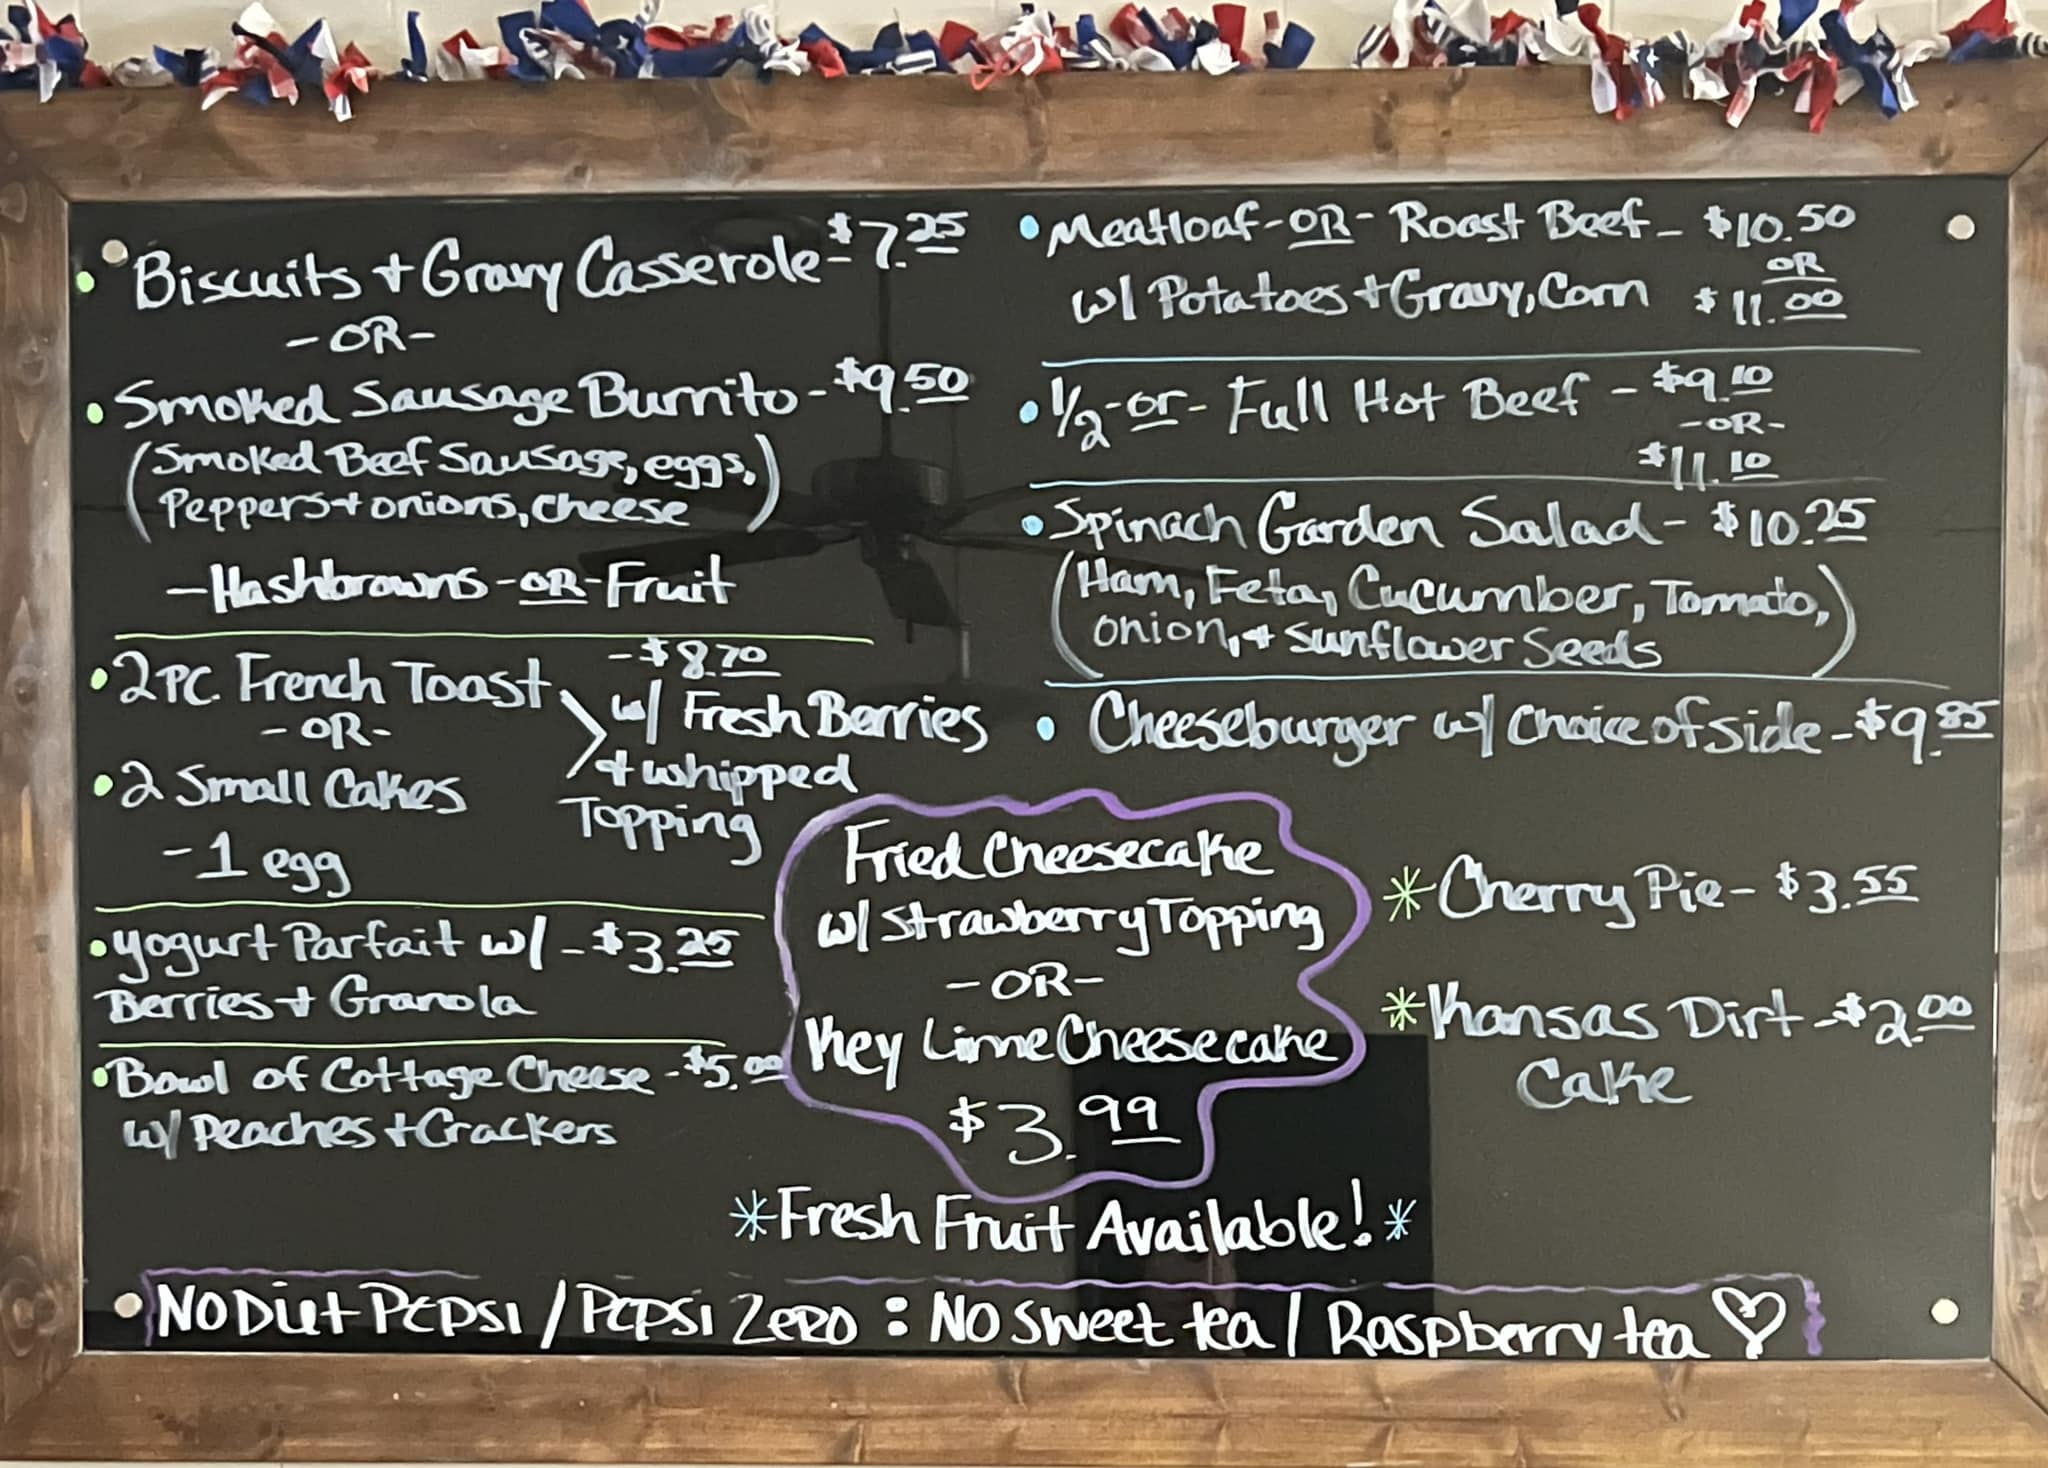 • Biscuits + Gravy Casserole - $7.25
-OR-
• Smoked Sausage Burrito - $9.50
(Smoked Beef Sausage, eggs,
Peppers + onions, cheese)
- Hashbrowns -OR- Fruit
• 2 PC. French Toast - $8.70
-OR- w/ Fresh Berries
• 2 Small Cakes + whipped
Topping
- 1 egg
• Yogurt Parfait w/ - $3.25
Berries + Granola
• Bowl of Cottage Cheese - $5.00
w/ Peaches + Crackers
• Meatloaf -OR- Roast Beef - $10.50
OR
w/ Potatoes + Gravy, Corn $11.00
• 1/2 -or- Full Hot Beef - $9.10
-OR-
$11.10
• Spinach Garden Salad - $10.25
(Ham, Feta, Cucumber, Tomato,
onion, + Sunflower Seeds)
• Cheeseburger w/ Choice of Side - $9.85
Fried Cheesecake
w/ Strawberry Topping
-OR-
Key Lime Cheesecake
$3.99
* Cherry Pie - $3.55
* Kansas Dirt - $2.00
Cake
*Fresh Fruit Available!*
NO Diet PEPSI / PEPSI ZERO : NO Sweet tea / Raspberry tea ♡